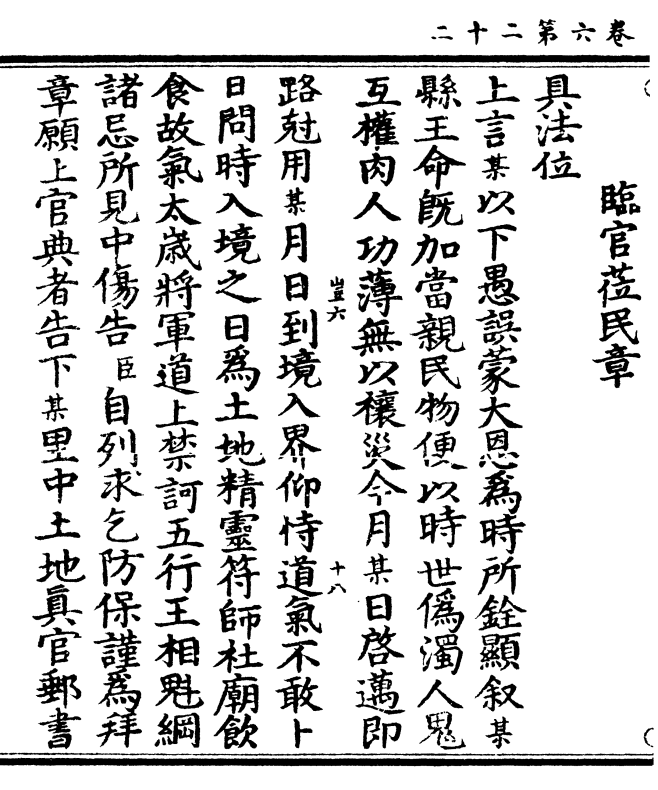 卷六第二十二
臨官莅民章
具法位
上言某以下愚誤蒙大恩為時所銓顯叙某
縣王命既加當親民物便以時世偽濁人鬼
互權肉人功薄無以穰災今月某日啓邁即
路尅用某月日到境入界仰恃道氣不敢卜
豈六
十八
日問時入境之日為土地精靈符師社廟飲
食故氣太歲將軍道上禁訶五行王相魁綱
諸忌所見中傷告臣自列求乞防保謹為拜
章願上官典者告下某里中土地真官郵書